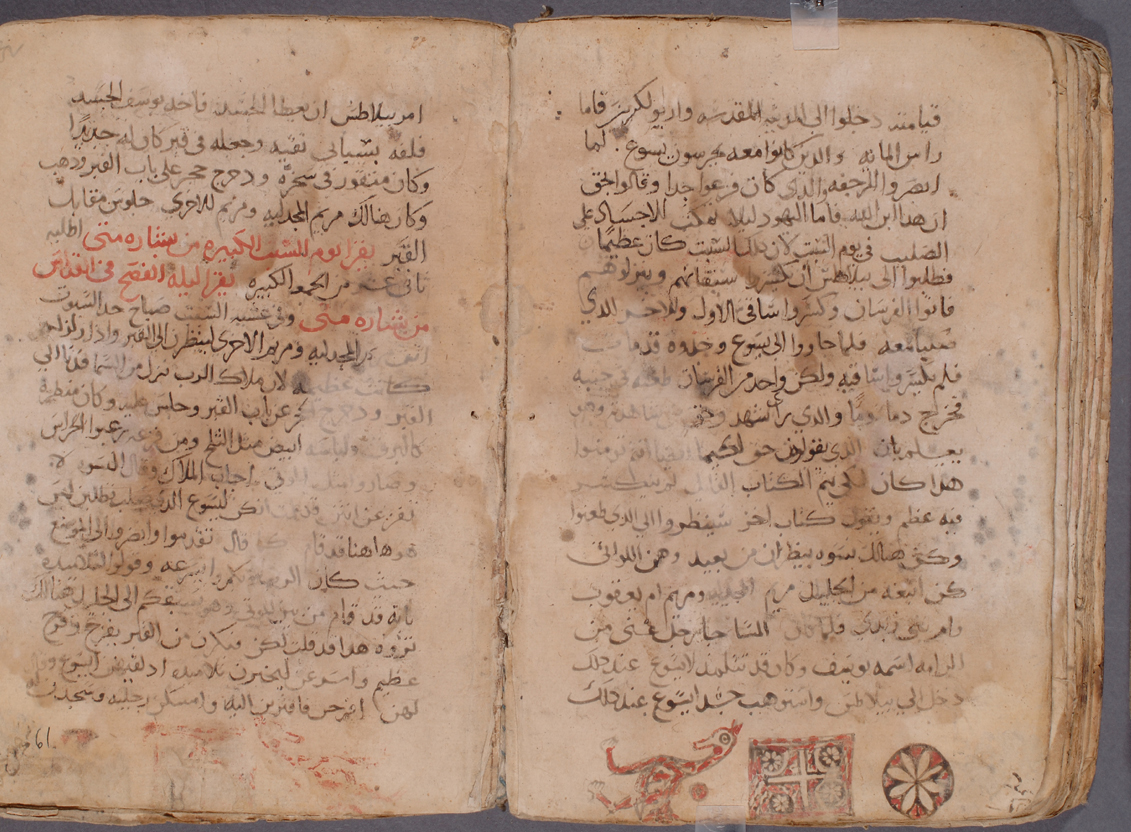 قيامته دخلوا الى المدينه المقدسه واريوا لكثير فاما
راس المائه والدين كانوا معه يحرسون يسوع كما
ابصروا الرجفه والدي كان فزعوا جدا وقالوا الحق
ان هدا ابن الله فاما اليهود ليلا تمكث الاجساد على
الصليب في يوم السبت لان ذلك السبت كان عظيما
فطلبوا الى بيلاطس ان تكسروا سيقانهم وينزلوهم
فاتوا الفرسان وكسروا ساقي الاول وللاخر الدي
صلبا معه فلما جاروا الى يسوع وجدوه قد مات
فلم يكسروا ساقيه ولكن واحد من الفرسان طعنه في جنبه
فخرج دما وما والدي راى شهد وحق هي شهادته وهو
يعلم بان الدي يقول هو حق لكيما انتم تومنوا
هدا كان لكي يتم الكتاب القايل لن ينكسر
فيه عظم ويقول كتاب اخر سينظروا الى الدي طعنوا
وكن هنالك نسوه ينظرن من بعيد وهن اللواتي
كن اتبعه من الجليل مريم المجدليه ومريم ام يعقوب
وام بني زبدى فلما كان المسا جا رجل غني من
الرامه اسمه يوسف وكان قد تتلمد لايسوع عند ذلك
دخل الى بيلاطس واستوهب جسد ايسوع عند ذلك
امر بيلاطس ان يعطا الجسد فاخد يوسف الجسد
فلفه بسبياني نقيه وجعله في قبر كان له جديدا
وكان منقور في سخره ودحرج حجر على باب القبر ودهب
وكان هنالك مريم المجدليه ومريم للاخرى جلوس مقابل
القبر يقرا يوم للسبت الكبيره من بشاره متى اطلبه
تاني عشر من الجمعه الكبيره يقرا ليله الفصح في القداس
من بشاره متى وفي عشيه السبت صباح حد السبوت
اتت مريم المجدليه ومريم الاخرى لينظرن الى القبر واذا زلزله
كانت عظيمه لان ملاك الرب نزل من السما فدنا الي
القبر ودحرج الحجر عن باب القبر وجلس عليه وكان منظره
كالبرق ولباسه ابيض مثل الثلج ومن فزعه رعبوا الحراس
وصاروا مثل الموتى فاجاب الملاك وقال للنسوه لا
تفزعن انتن قد علمت انكن ليسوع الدي صلب تطلبن ليس
هو هاهنا قد قام كما قال تقدموا وابصروا الى الموضع
حيث كان الرب وقولوا لتلاميده
بانه قد قام من بين الموتى وهو يسبقكم الى الجليل هنالك
تروه هدا قد قلت لكن فبكرن من القبر بفزع وفرح
عظيم واسرعن ليخبرن تلاميده اد لقيهن ايسوع وقال
لهن افرحن فاقتربن اليه وامسكن رجليه وسجدن
61